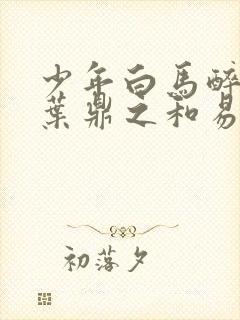 少年白馬醉
葉鼎之和易
初落夕